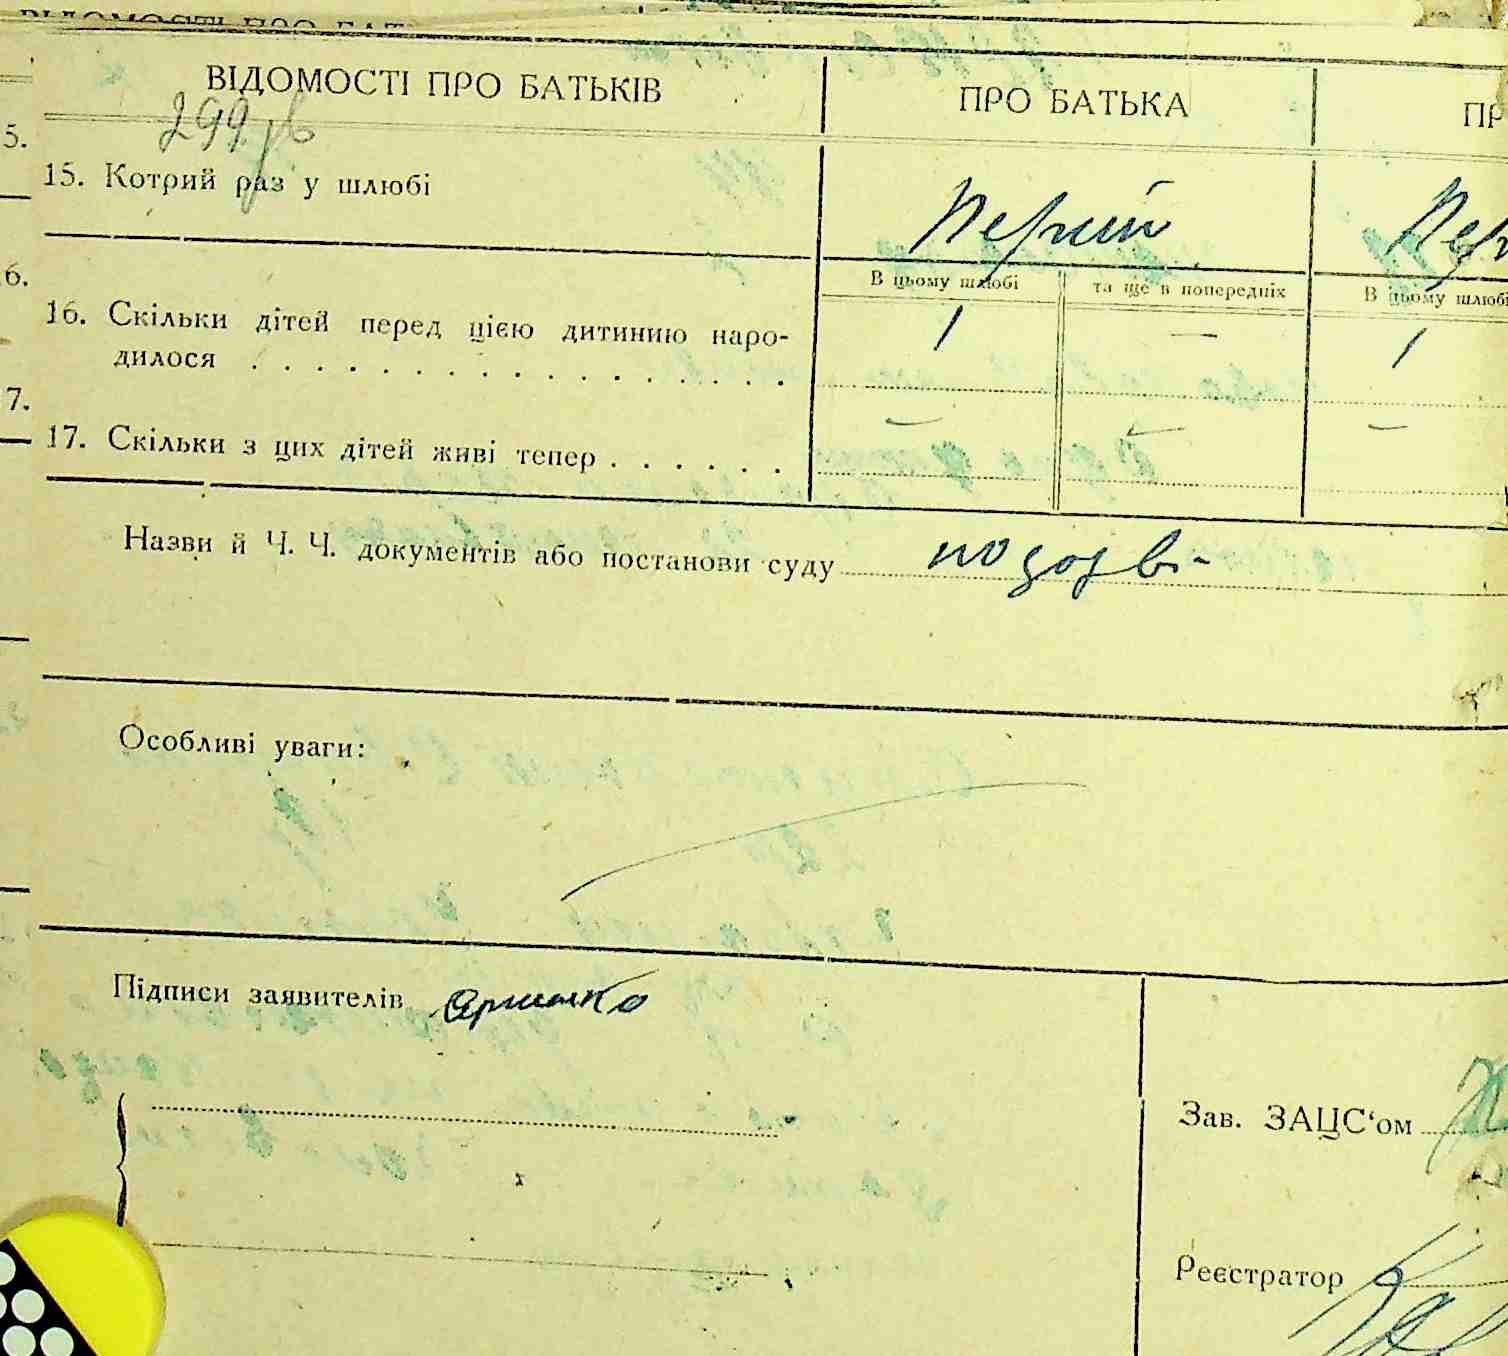 ВІДОМОСТІ ПРО БАТЬКІВ ПРО БАТЬКА ПР
299
5.
15. Котрий раз у шлюбі Перший Пер
6. В цьому шлюбі та ще в попередніх В цьому шлюбі
16. Скільки дітей перед цією дитиною наро- 1 — 1
дилося . . . . . . . . . . . . . . . . .
7.
17. Скільки з цих дітей живі тепер . . . . . . — — —
Назви й Ч. Ч. документів або постанови суду
Особливі уваги:
Підписи заявителів
Зав. ЗАЦС‘ом
Реєстратор